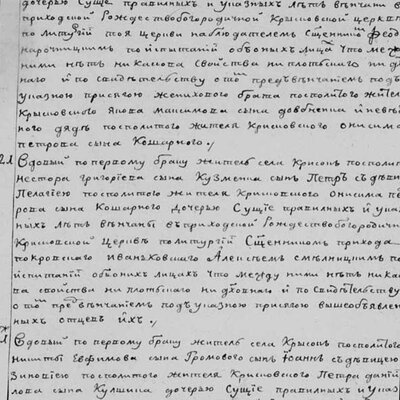 дочерью Сущѣ правилныхъ и указныхъ лѣтъ вѣнчани в
приходской Рождествобогородичной Крисковской церквѣ
по литургіи тоя церкви наблюдателемъ Сщенникѡ Ѳеод
по испытаніи обѡихъ лицъ Что меж
ними нѣтъ ни каковa свойства ни плотскаго ни дꙋ
наго и по свидѣтелству о томъ предъ вѣнчаніемъ подъ
указною присягою женихового брата посполитого жителя
Крисковского Якова Максимова сына и невѣ
ного дядѣ посполитого жителя Крисковского Онисима
Петрова сына Кошарного
21 Вдовый по первому браку житель села Крисокъ посполит
Нестора Григоріева сына Кузменка сынъ Петръ съ дѣви
Пелагіею посполитого жителя Крисковского Онисима Пе
рова сына Кошарного дочерью Сущѣ правилныхъ и указ
ныхъ лѣтъ вѣнчаны въ приходской Рождествобогородич
Крисковской Церквѣ по литургіи Сщенникомъ прихода
покровского Иваньковского Алексѣемъ по
испитаніи обоихъ лицахъ что между ними нѣтъ ни ка
ва свойства ни плотскаго ни дховнаго и по Свидѣтелству
о томъ предъ вѣнчаніемъ подъ указною присягою вышеобъявлен
ныхъ отцевъ ихъ
Вдовый по первому браку житель села Крисокъ посполитого
Никиты Евфилова сына Громового сынъ Іоаннъ съ дѣвицею
Зиновіею посполитого жителя Крисковского Петра Даній
лова сына Кулшина дочерью Сущѣ правилныхъ и Указ